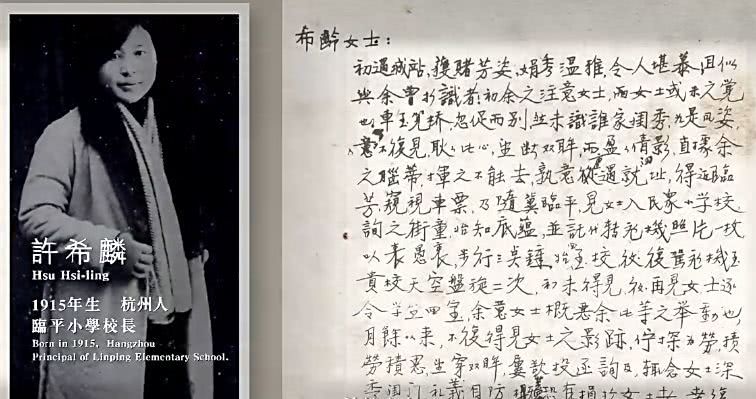 許希麟
Hsu Hsi-ling
1915年生 杭州人
臨平小學校長
Born in 1915, Hangzhou
Principal of Linping Elementary School.
布齡女士：
初遇城站，獲睹芳姿，娟秀溫雅，令人堪慕且似
與余曾相識者，初余之注意女士，而女士或未之覺
也，車至筧橋，忽促而別，並未識誰家閨秀，如是風姿，
意不復見，耿耿此心，望斷双眸，而盈盈倩影，直據余
之腦蒂，揮之不能去，孰意 過就 得近臨
芳，窺視車票，乃隨冀臨平，見女士入民衆小學校，
詢之街童，始知底蘊，並託代替飛機照片一枚
以表愚衷，步行三 鐘 校，後復駕飛機至
貴校天空盤旋二次，初未得見，後再見女士逐
令學生回室，余意女士概惡余此等之舉動也，
月餘以來，不復得見女士之影跡，佇 為勞，積
勞積思，望穿双眸，屢欲投函詢及，輒念女士深
秀閨門 禮義自防 恐有損於女士